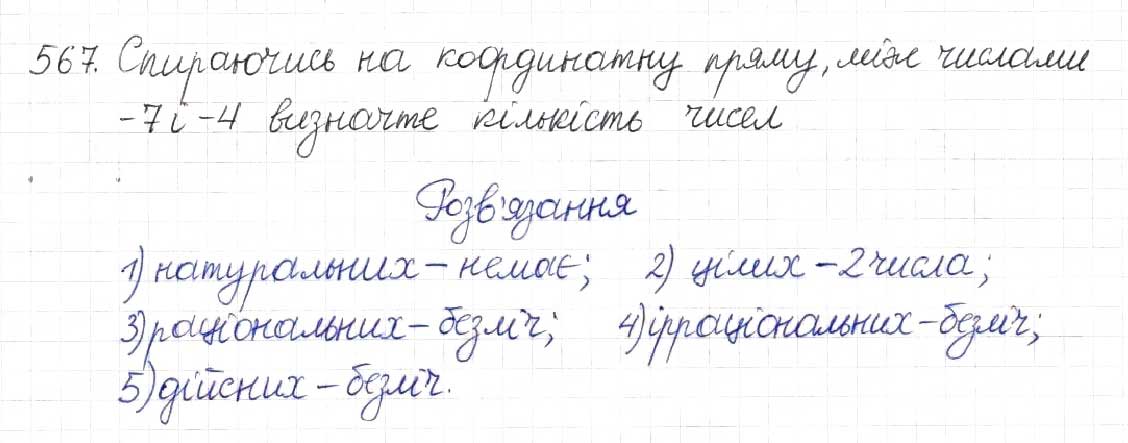 567. Спираючись на координатну пряму, між числами
-7 і -4 визначте кількість чисел
Розв'язання
1) натуральних - немає; 2) цілих - 2 числа;
3) раціональних - безліч; 4) ірраціональних - безліч;
5) дійсних - безліч.